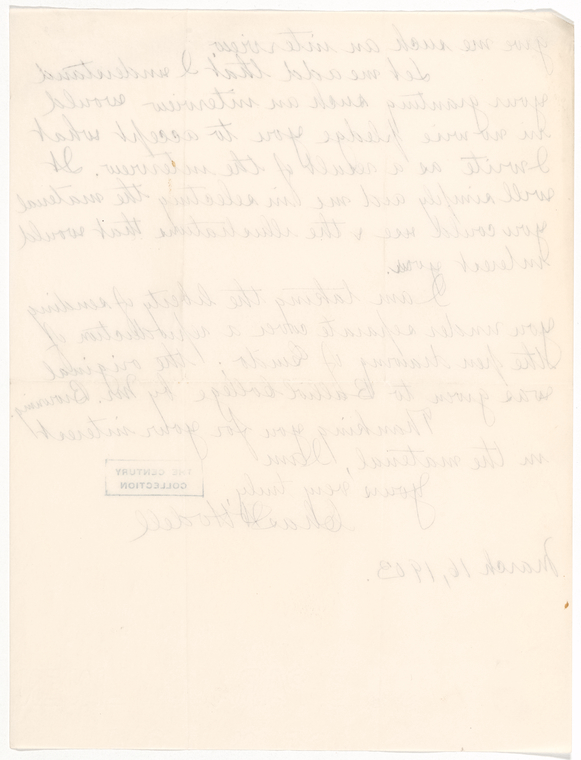 give me such an interview.
Let me add that I understand
your granting such an interview would
in no wise pledge you to accept what
I write as a result of the interview. It
will simply aid me in selecting the material
you could use & the illustrations that would
interest you.
I am taking the liberty of sending
you under separate cover a reproduction of
the pen drawing of Guido. The original
was given to Balliol College by Mr. Browning.
Thanking you for your interest
in the material, I am
Yours very truly,
Chas W Hodell
March 16, 1903.
THE CENTURY
COLLECTION